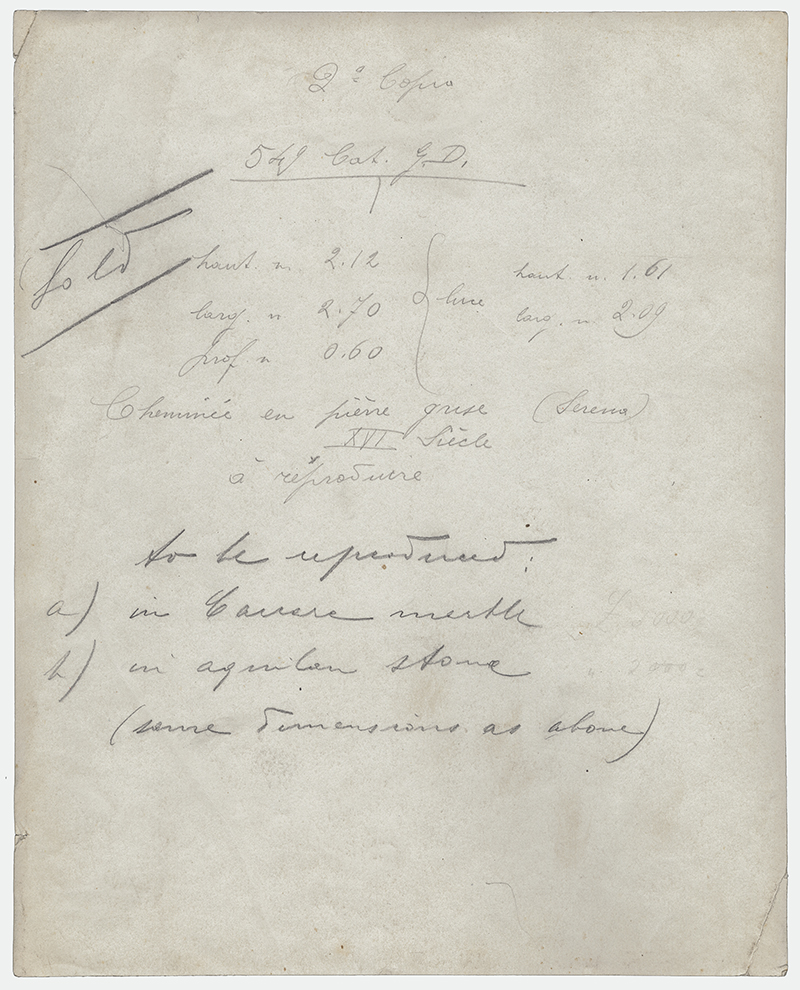 2ª Copia
549 Cat. G.D.
Sold
haut. m. 2.12
larg. m 2.70
Prof. m 0.60
luce
haut. m. 1.61
larg. m 2.09
Cheminée en pièrre grise (Serena)
XVI Siècle
à réproduire
to be reproduced:
a) in Carrare merble
b) in aquilan stone
(same dimensions as above)